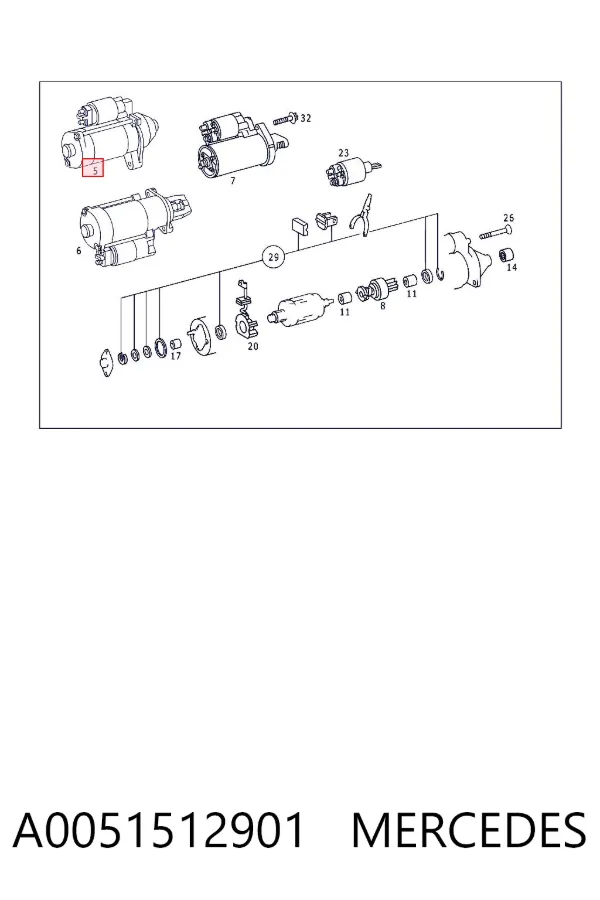 32
23
5
7
26
6
29
14
11
8
11
20
17
A0051512901 MERCEDES